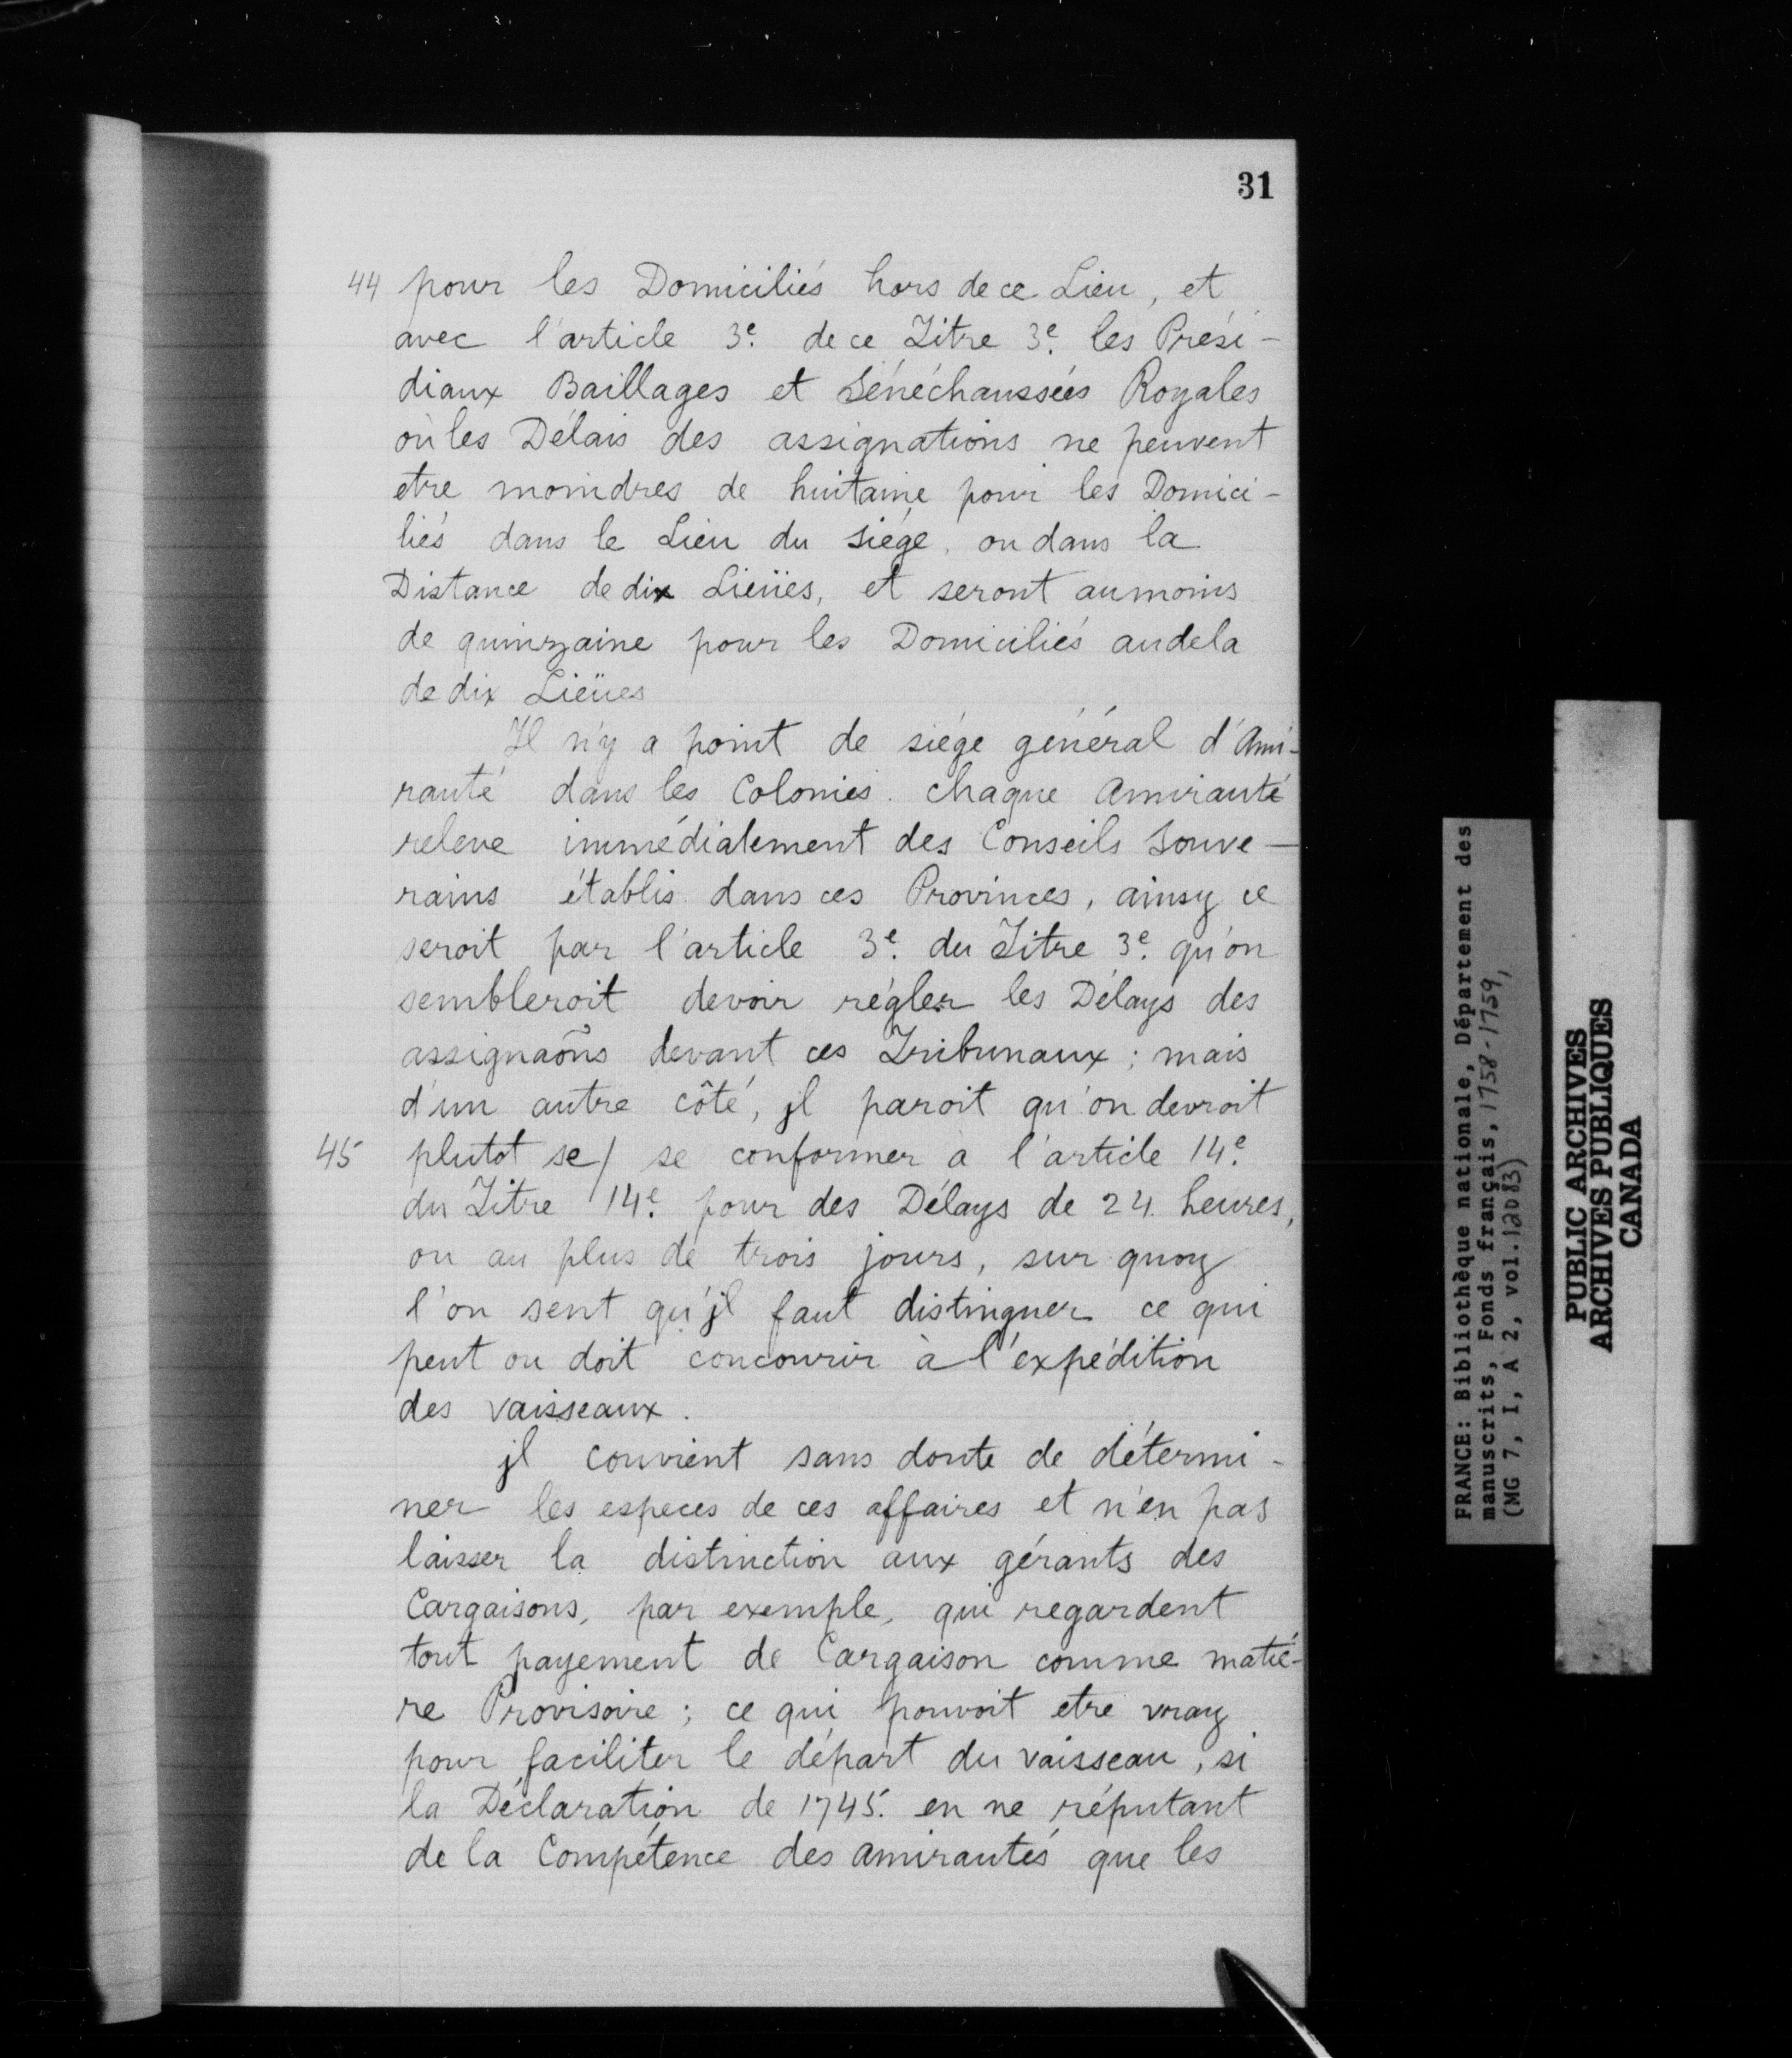 31
44 pour les Domiciliés hors de ce Lieu, et
avec l'article 3e. de ce Titre 3e. les Prési-
diaux Baillages et Sénéchaussées Royales
où les Délais des assignations ne peuvent
etre moindres de huitaine pour les Domici-
liés dans le Lieu du siége, ou dans la
Distance de dix Lieües, et seront aumoins
de quinzaine pour les Domiciliés audela
de dix Lieües
Il n'y a point de siége général d'Ami-
rauté dans les Colonies. chaque Amirauté
releve immédiatement des Conseils Souve-
rains établis dans ces Provinces, ainsy ce
seroit par l'article 3e. du Titre 3e. qu'on
sembleroit devoir régler les Délays des
assignaõns devant ces Tribunaux; mais
d'un autre côté, jl paroit qu'on devroit
45 plutot se/ se conformer à l'article 14e.
du Titre 14e. pour des Délays de 24. heures,
ou au plus de trois jours, sur quoy
l'on sent qu'jl faut distinguer ce qui
peut ou doit concourir à l'expédition
des vaisseaux.
jl convient sans doute de détermi-
ner les especes de ces affaires et n'en pas
laisser la distinction aux gérants des
Cargaisons, par exemple, qui regardent
tout payement de Cargaison comme matié-
re Provisoire; ce qui pouvoit etre vray
pour faciliter le départ du vaisseau, si
la Déclaration de 1745. en ne réputant
de la Compétence des amirautés que les
FRANCE: Bibliothèque nationale, Département des
manuscrits, Fonds français, 1758-1759,
(MG 7, I, A 2, vol. 12083)
PUBLIC ARCHIVES
ARCHIVES PUBLIQUES
CANADA